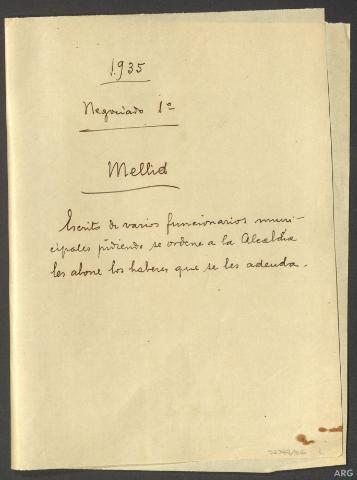 1.935
Negociado 1º
Mellid
Escrito de varios funcionarios muni-
cipales pidiendo se ordene a la Alcaldía
les abone los haberes que se les adeuda.
ARG